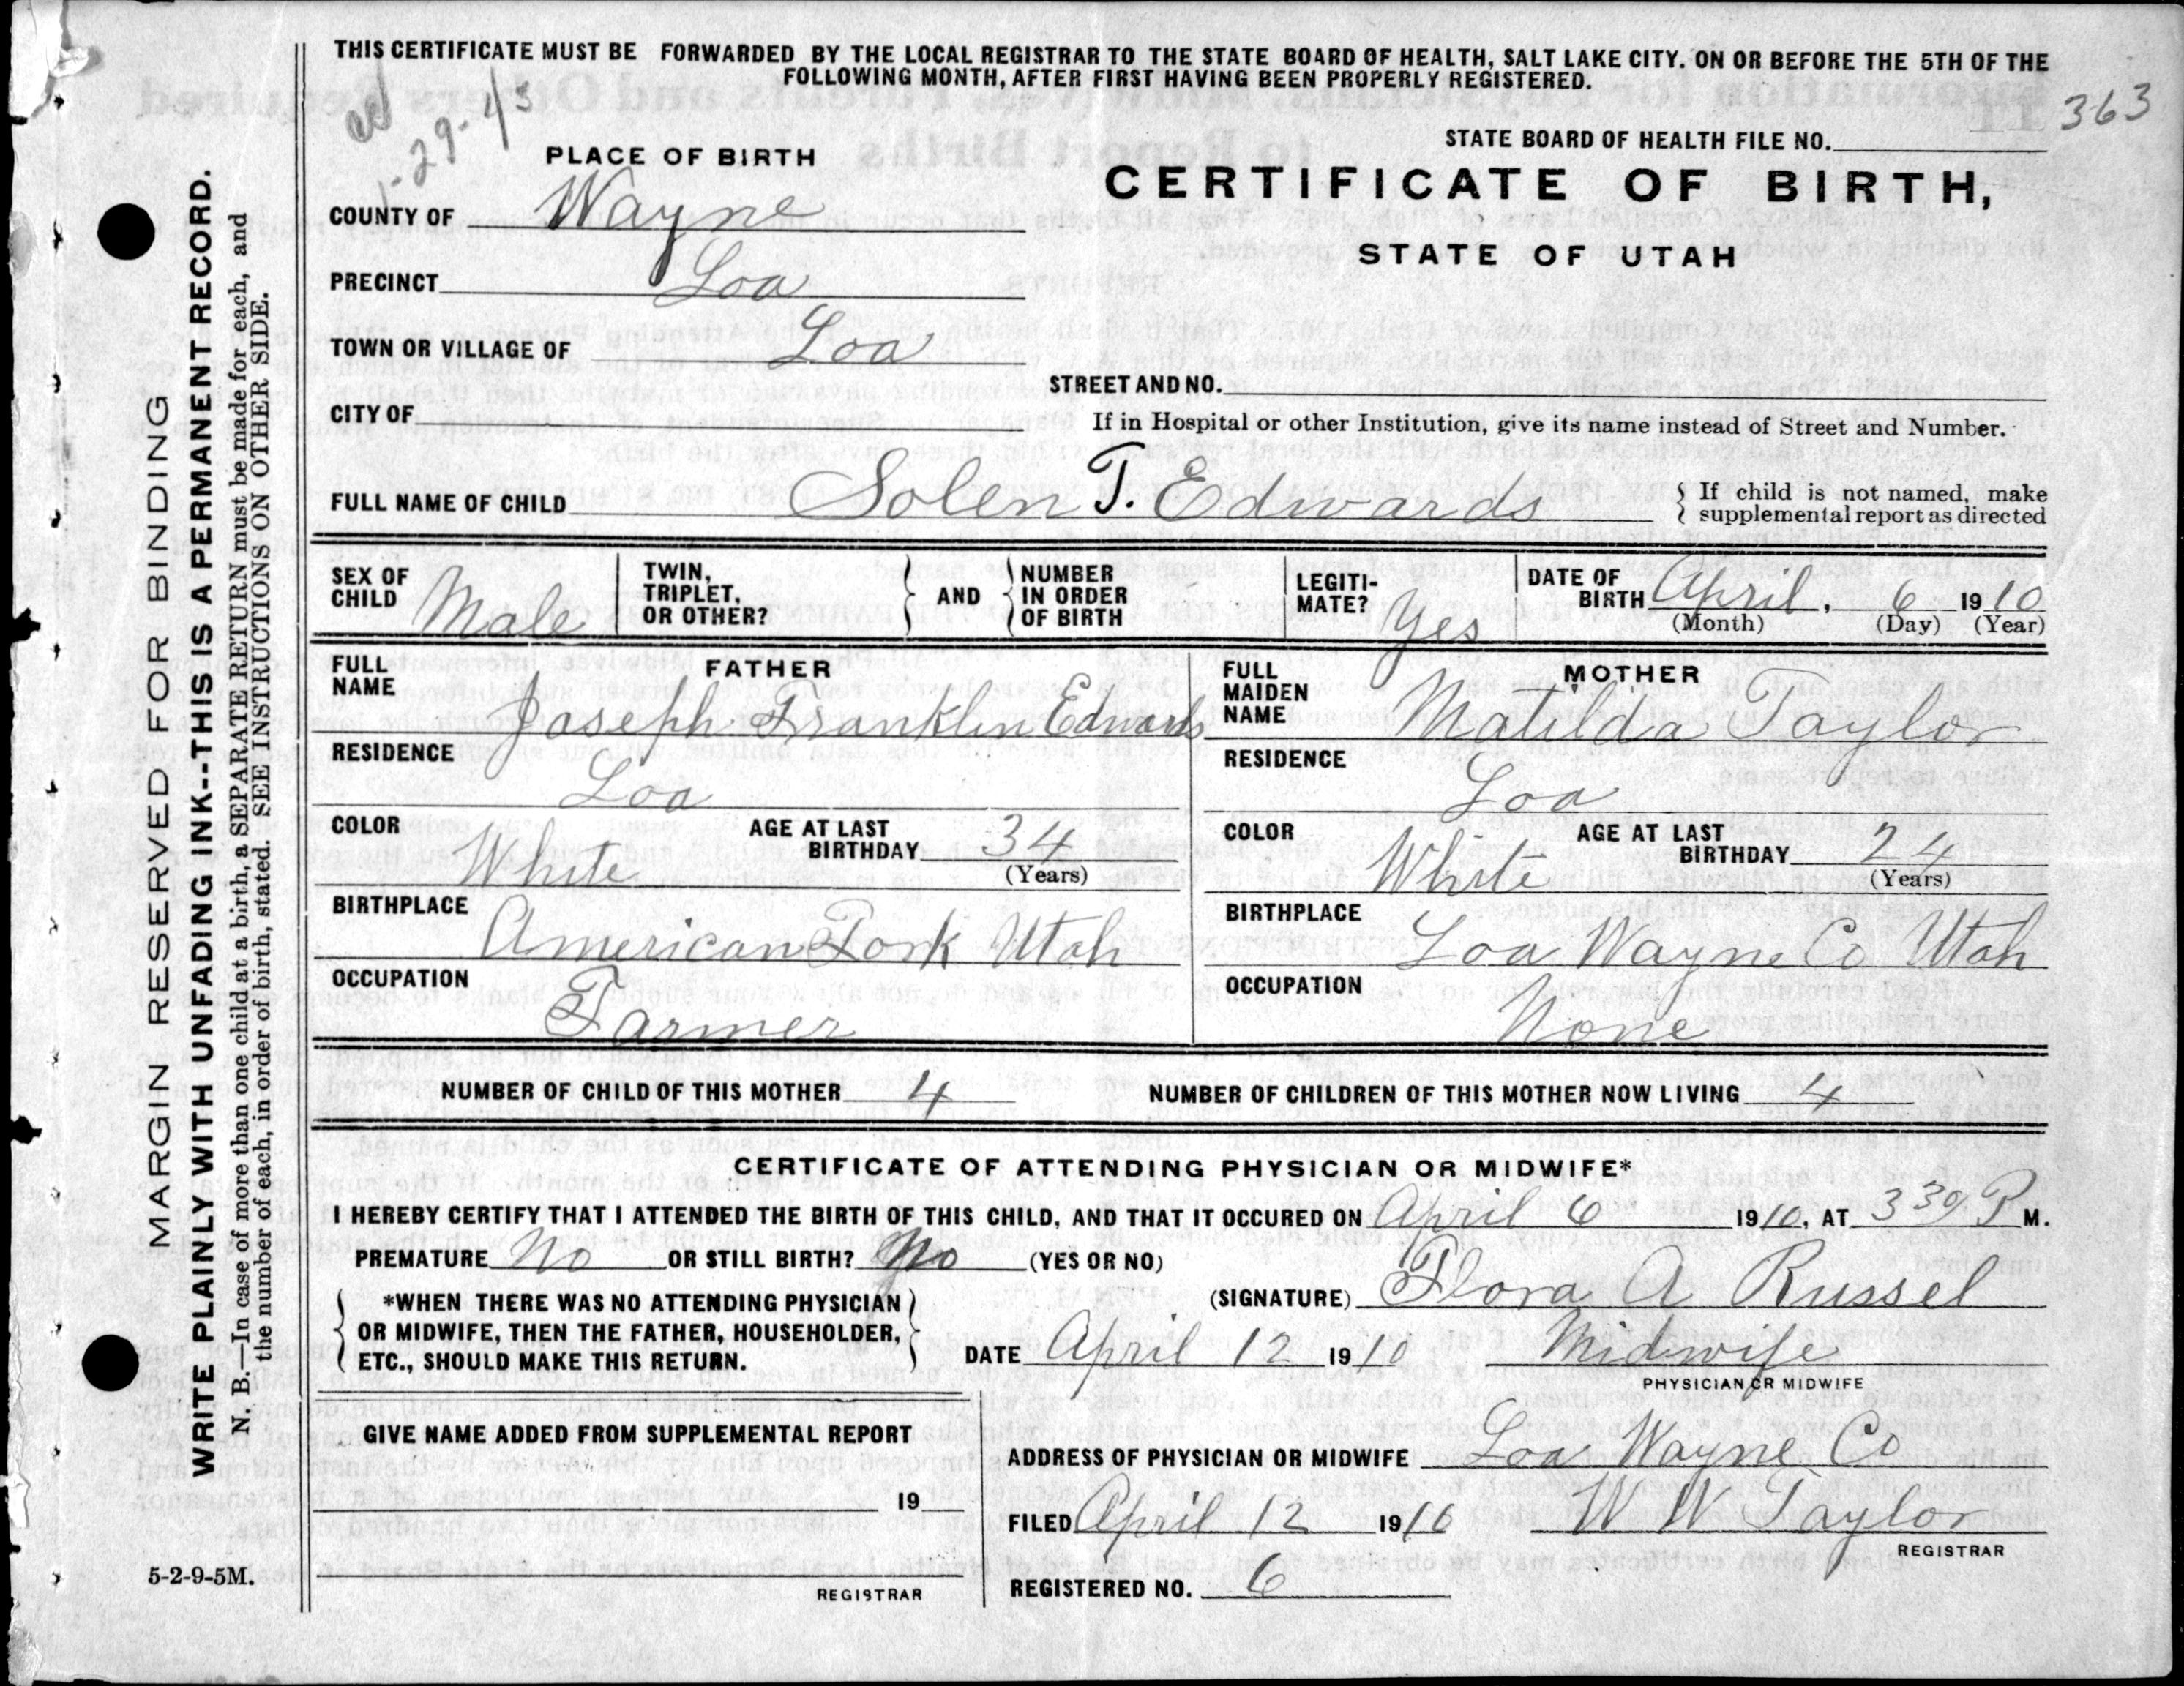 THIS CERTIFICATE MUST BE FORWARDED BY THE LOCAL REGISTRAR TO THE STATE BOARD OF HEALTH, SALT LAKE CITY. ON OR BEFORE THE 5TH OF THE
FOLLOWING MONTH, AFTER FIRST HAVING BEEN PROPERLY REGISTERED.
1-29-43
363
STATE BOARD OF HEALTH FILE NO.
PLACE OF BIRTH
CERTIFICATE OF BIRTH,
STATE OF UTAH
COUNTY OF Wayne
PRECINCT Loa
TOWN OR VILLAGE OF Loa
STREET AND NO.
CITY OF
If in Hospital or other Institution, give its name instead of Street and Number.
FULL NAME OF CHILD Solen T. Edwards
If child is not named, make
supplemental report as directed
SEX OF CHILD Male
TWIN, TRIPLET, OR OTHER?
AND
NUMBER IN ORDER OF BIRTH
LEGITI-MATE? Yes
DATE OF BIRTH April, 6 1910
(Month) (Day) (Year)
FATHER
FULL NAME Joseph Franklin Edwards
RESIDENCE Loa
COLOR White
AGE AT LAST BIRTHDAY 34
(Years)
BIRTHPLACE American Fork Utah
OCCUPATION Farmer
MOTHER
FULL MAIDEN NAME Matilda Taylor
RESIDENCE Loa
COLOR White
AGE AT LAST BIRTHDAY 24
(Years)
BIRTHPLACE Loa Wayne Co Utah
OCCUPATION None
NUMBER OF CHILD OF THIS MOTHER 4
NUMBER OF CHILDREN OF THIS MOTHER NOW LIVING 4
CERTIFICATE OF ATTENDING PHYSICIAN OR MIDWIFE*
I HEREBY CERTIFY THAT I ATTENDED THE BIRTH OF THIS CHILD, AND THAT IT OCCURED ON April 6 1910, AT 3 39 P M.
PREMATURE No OR STILL BIRTH? No (YES OR NO)
*WHEN THERE WAS NO ATTENDING PHYSICIAN
OR MIDWIFE, THEN THE FATHER, HOUSEHOLDER,
ETC., SHOULD MAKE THIS RETURN.
(SIGNATURE) Flora A Russel
DATE April 12 1910 Midwife
PHYSICIAN OR MIDWIFE
GIVE NAME ADDED FROM SUPPLEMENTAL REPORT
19
REGISTRAR
ADDRESS OF PHYSICIAN OR MIDWIFE Loa Wayne Co
FILED April 12 1910 W W Taylor
REGISTRAR
REGISTERED NO. 6
5-2-9-5M.
MARGIN RESERVED FOR BINDING
WRITE PLAINLY WITH UNFADING INK--THIS IS A PERMANENT RECORD.
N. B.—In case of more than one child at a birth, a SEPARATE RETURN must be made for each, and
the number of each, in order of birth, stated. SEE INSTRUCTIONS ON OTHER SIDE.